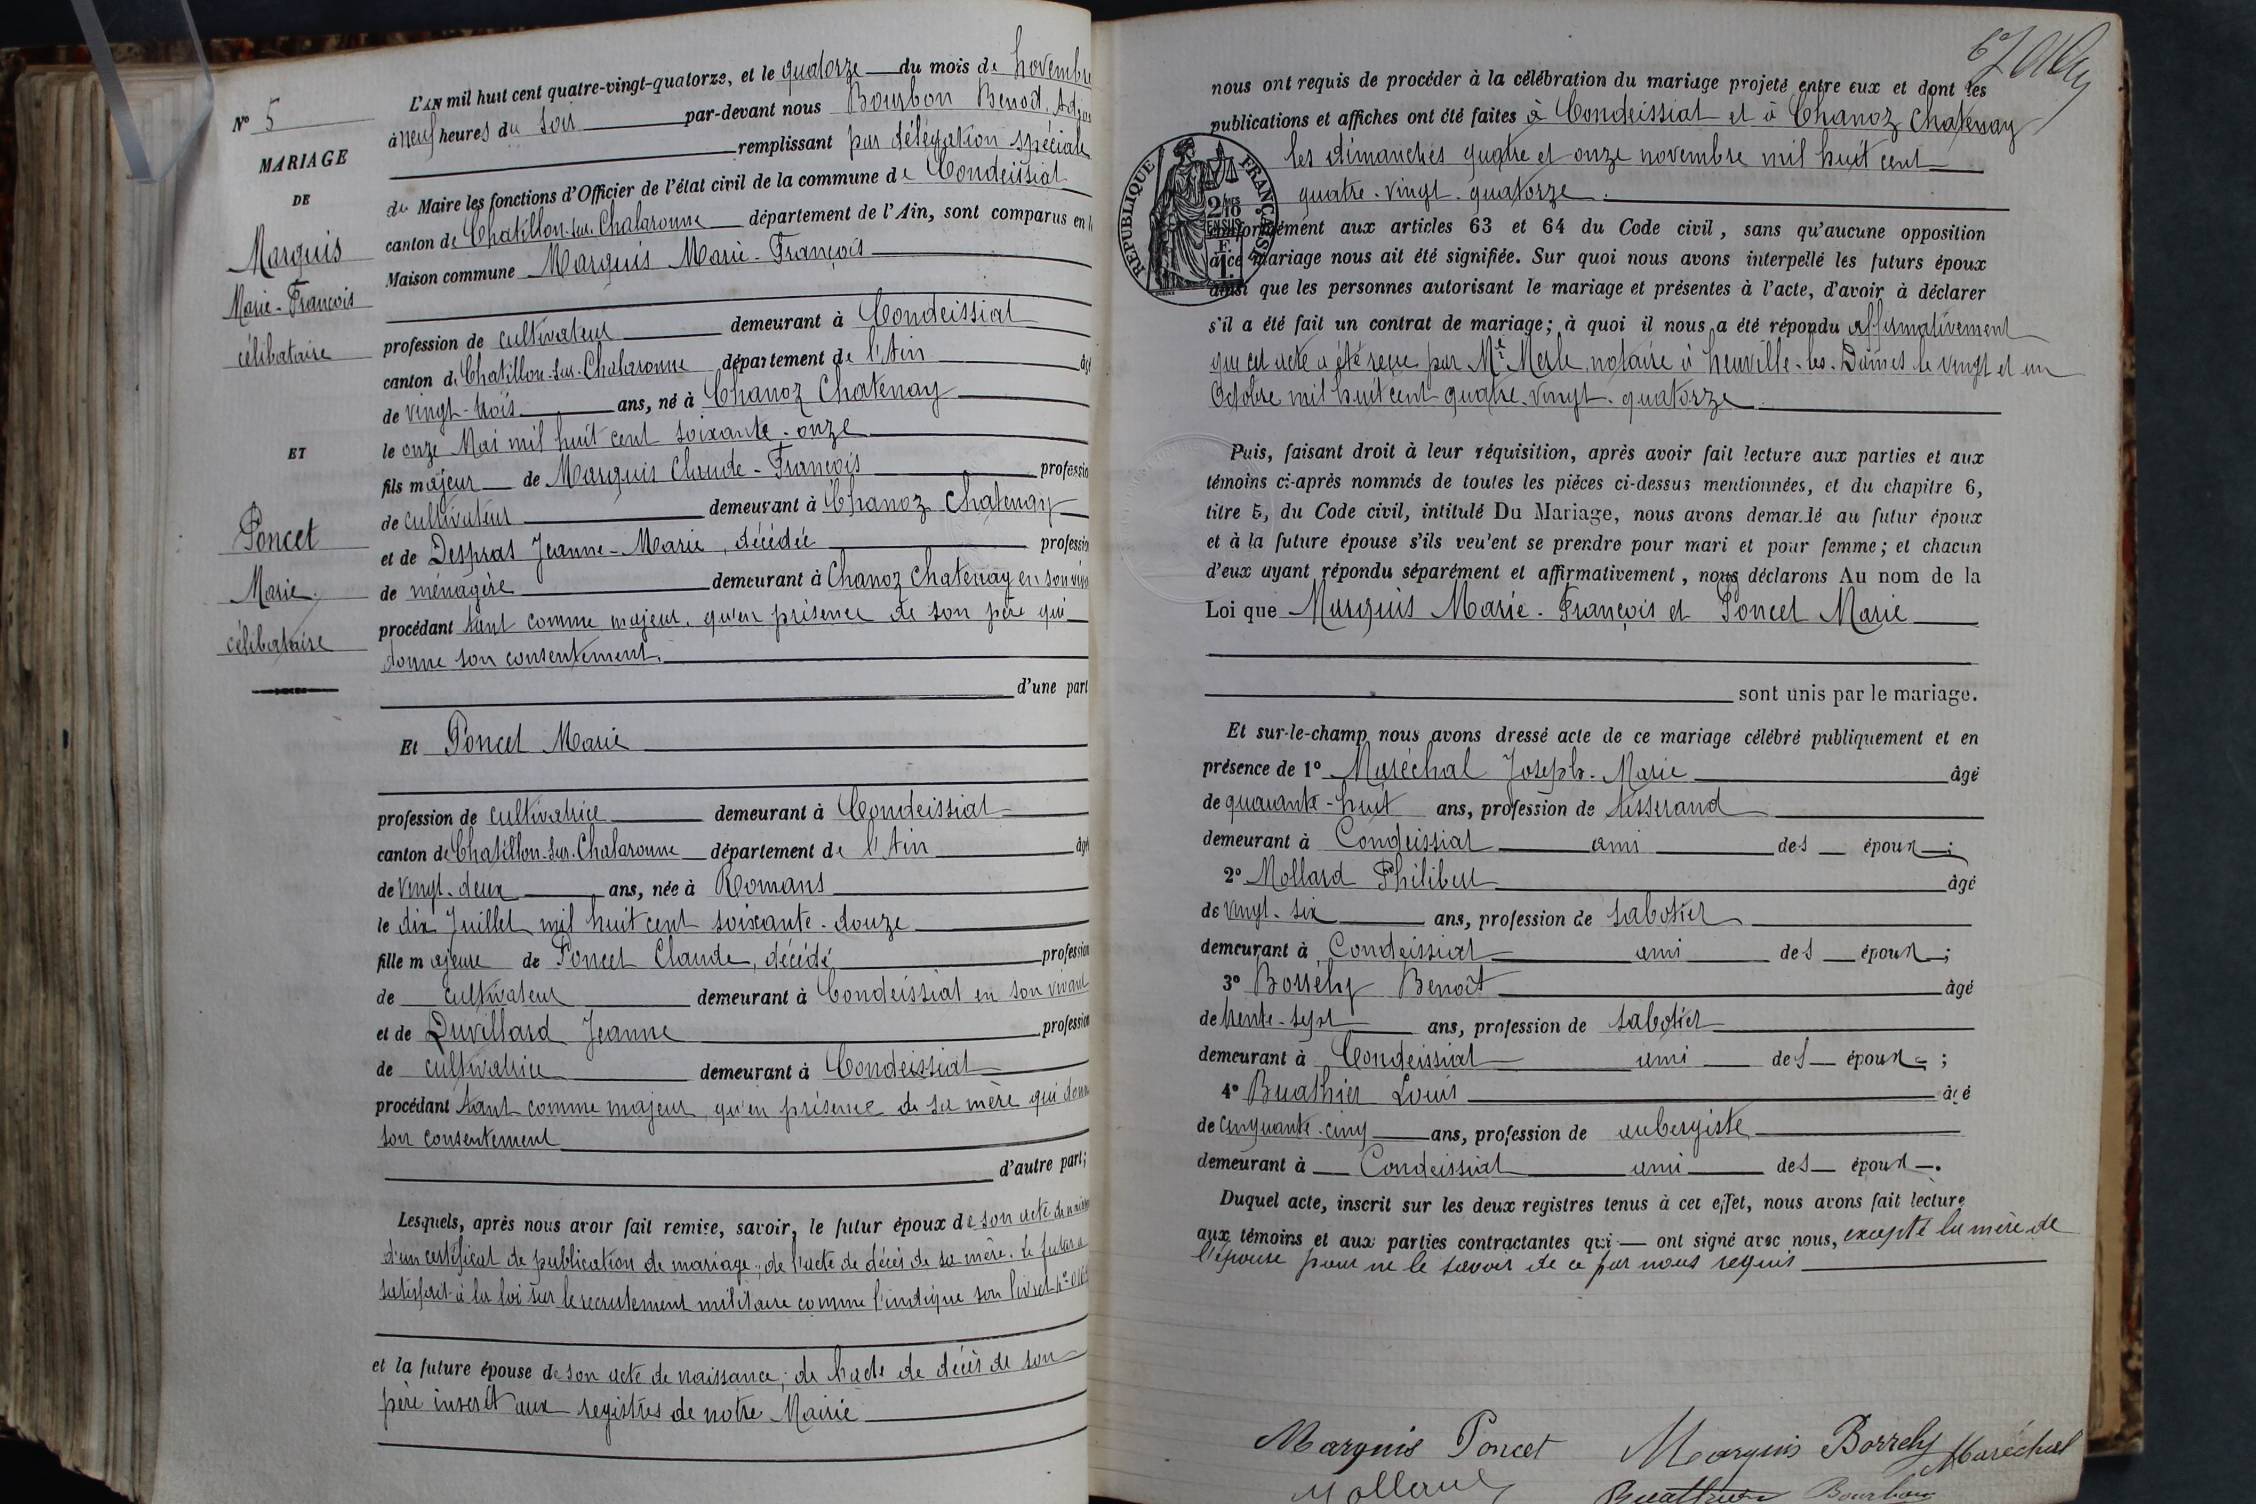 N° 5
MARIAGE
DE
Marquis
Marie-François
célibataire
ET
Poncet
Marie
célibataire
L'AN mil huit cent quatre-vingt-quatorze, et le quatorze du mois de novembre
à neuf heures du soir par-devant nous Bourbon Benoit, Adjoin
remplissant par délégation spéciale
du Maire les fonctions d'Officier de l'état civil de la commune de Condeissiat
canton de Chatillon-sur-Chalaronne département de l'Ain, sont comparus en la
Maison commune Marquis Marie-François
profession de cultivateur demeurant à Condeissiat
canton de Chatillon-sur-Chalaronne département de l'Ain âgé
de vingt-trois ans, né à Chanoz Chatenay
le onze Mai mil huit cent soixante-onze
fils majeur de Marquis Claude-François profession
de cultivateur demeurant à Chanoz Chatenay
et de Desprat Jeanne-Marie, décédée profession
de ménagère demeurant à Chanoz Chatenay en son viva
procédant tant comme majeur, qu'en présence de son père qui
donne son consentement.
d'une part
Et Poncet Marie
profession de cultivatrice demeurant à Condeissiat
canton de Chatillon-sur-Chalaronne département de l'Ain âgé
de vingt-deux ans, née à Romans
le dix Juillet mil huit cent soixante-douze
fille majeure de Poncet Claude, décédé profession
de cultivateur demeurant à Condeissiat en son vivant
et de Duvillard Jeanne profession
de cultivatrice demeurant à Condeissiat
procédant tant comme majeur, qu'en présence de sa mère qui donne
son consentement
d'autre part;
Lesquels, après nous avoir fait remise, savoir, le futur époux de son acte de naissan
d'un certificat de publication de mariage; de l'acte de décès de sa mère. Le futur a
satisfait à la loi sur le recrutement militaire comme l'indique son livret n°
et la future épouse de son acte de naissance; de l'acte de décès de son
père inscrit aux registres de notre Mairie
nous ont requis de procéder à la célébration du mariage projeté entre eux et dont les
publications et affiches ont été faites à Condeissiat et à Chanoz Chatenay
les dimanches quatre et onze novembre mil huit cent
quatre-vingt-quatorze.
RÉPUBLIQUE FRANÇAISE
2/10
EN SUS
F.
1.
conformément aux articles 63 et 64 du Code civil, sans qu'aucune opposition
à ce mariage nous ait été signifiée. Sur quoi nous avons interpellé les futurs époux
ainsi que les personnes autorisant le mariage et présentes à l'acte, d'avoir à déclarer
s'il a été fait un contrat de mariage; à quoi il nous a été répondu affirmativement
que cet acte a été reçue par Me Merle notaire à Neuville-les-Dames le vingt et un
Octobre mil huit cent quatre-vingt-quatorze.
Puis, faisant droit à leur réquisition, après avoir fait lecture aux parties et aux
témoins ci-après nommés de toutes les pièces ci-dessus mentionnées, et du chapitre 6,
titre 5, du Code civil, intitulé Du Mariage, nous avons demandé au futur époux
et à la future épouse s'ils veulent se prendre pour mari et pour femme; et chacun
d'eux ayant répondu séparément et affirmativement, nous déclarons Au nom de la
Loi que Marquis Marie-François et Poncet Marie
sont unis par le mariage.
Et sur-le-champ nous avons dressé acte de ce mariage célébré publiquement et en
présence de 1° Maréchal Joseph-Marie âgé
de quarante-huit ans, profession de tisserand
demeurant à Condeissiat ami des époux;
2° Mollard Philibert âgé
de vingt-six ans, profession de sabotier
demeurant à Condeissiat ami des époux;
3° Borrély Benoît âgé
de trente-sept ans, profession de sabotier
demeurant à Condeissiat ami des époux;
4° Buathier Louis âgé
de cinquante-cinq ans, profession de aubergiste
demeurant à Condeissiat ami des époux.
Duquel acte, inscrit sur les deux registres tenus à cet effet, nous avons fait lecture
aux témoins et aux parties contractantes qui ont signé avec nous, excepté la mère de
l'épouse pour ne le savoir de ce par nous requis
Marquis Poncet Marquis Borrely Maréchal
Mollard Buathier Bourbon